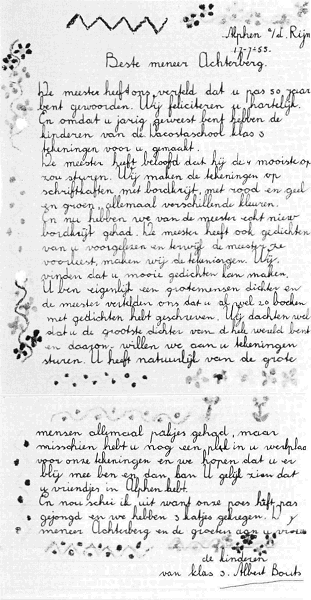 Alphen a/d. Rijn
17-7-'55.
Beste meneer Achterberg.
De meester heeft ons verteld dat u pas 50 jaar
bent geworden. Wij feliciteren u hartelijk.
En omdat u jarig geweest bent hebben de
kinderen van de Dacostaschool klas 3
tekeningen voor u gemaakt.
De meester heeft beloofd dat hij de 4 mooiste op
zou sturen. Wij maken de tekeningen op
schriftkaften met bordkrijt, met rood en geel
en groen, allemaal verschillende kleuren.
En nu hebben we van de meester echt nieuw
bordkrijt gehad. De meester heeft ook gedichten
van u voorgelezen en terwijl de meester ze
voorleest, maken wij de tekeningen. Wij
vinden dat u mooie gedichten kan maken.
U ben eigenlijk een grotemensen dichter en
de meester vertelden ons dat u al wel 20 boeken
met gedichten hebt geschreven. Wij dachten wel
dat u de grootste dichter van d hele wereld bent
en daarom willen we aan u tekeningen
sturen. U heeft natuurlijk van de grote
mensen allemaal pakjes gehad, maar
misschien hebt u nog een plekje in u werkplaa
voor onze tekeningen en we hopen dat u er
blij mee ben en dan kan U gelijk zien dat
u vriendjes in Alphen hebt.
En nou schei ik uit want onze poes heeft pas
gejongd en we hebben 3 katjes gekregen. D y
meneer Achterberg en de groeten aan u vrouw
de kinderen
van klas 3. Albert Bouts